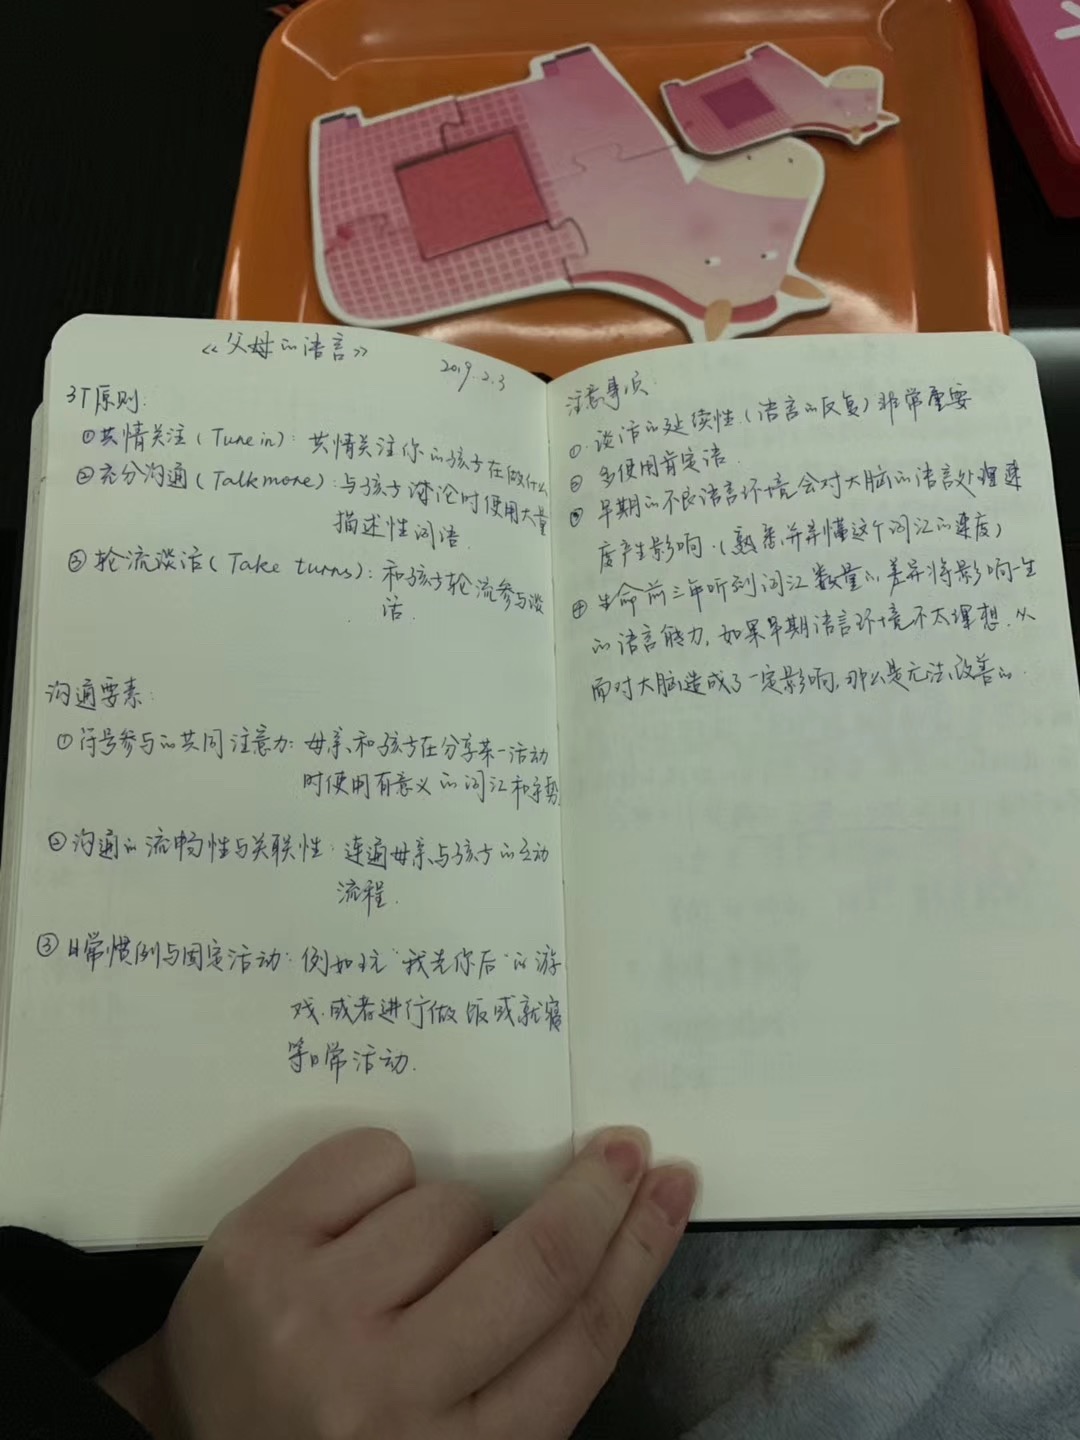 《父母的语言》
2019.2.3
3T原则:
①共情关注(Tune in): 共情关注你的孩子在做什么
②充分沟通(Talk more): 与孩子谈论时使用大量
描述性词语.
③轮流谈话(Take turns): 和孩子轮流参与谈
话.
沟通要素:
①符号参与的共同注意力: 母亲和孩子在分享某一活动
时使用有意义的词汇和手势
②沟通的流畅性与关联性: 连通母亲与孩子的互动
流程.
③日常惯例与固定活动: 例如玩"我先你后"的游
戏.或者进行做饭或就寝
等日常活动.
注意事项:
①谈话的延续性.(语言的反复)非常重要
②多使用肯定语.
③早期的不良语言环境会对大脑的语言处理速
度产生影响.(熟悉并弄懂这个词汇的速度)
④生命前三年听到词汇数量的差异将影响一生
的语言能力,如果早期语言环境不太理想.从
而对大脑造成了一定影响,那么是无法改善的.